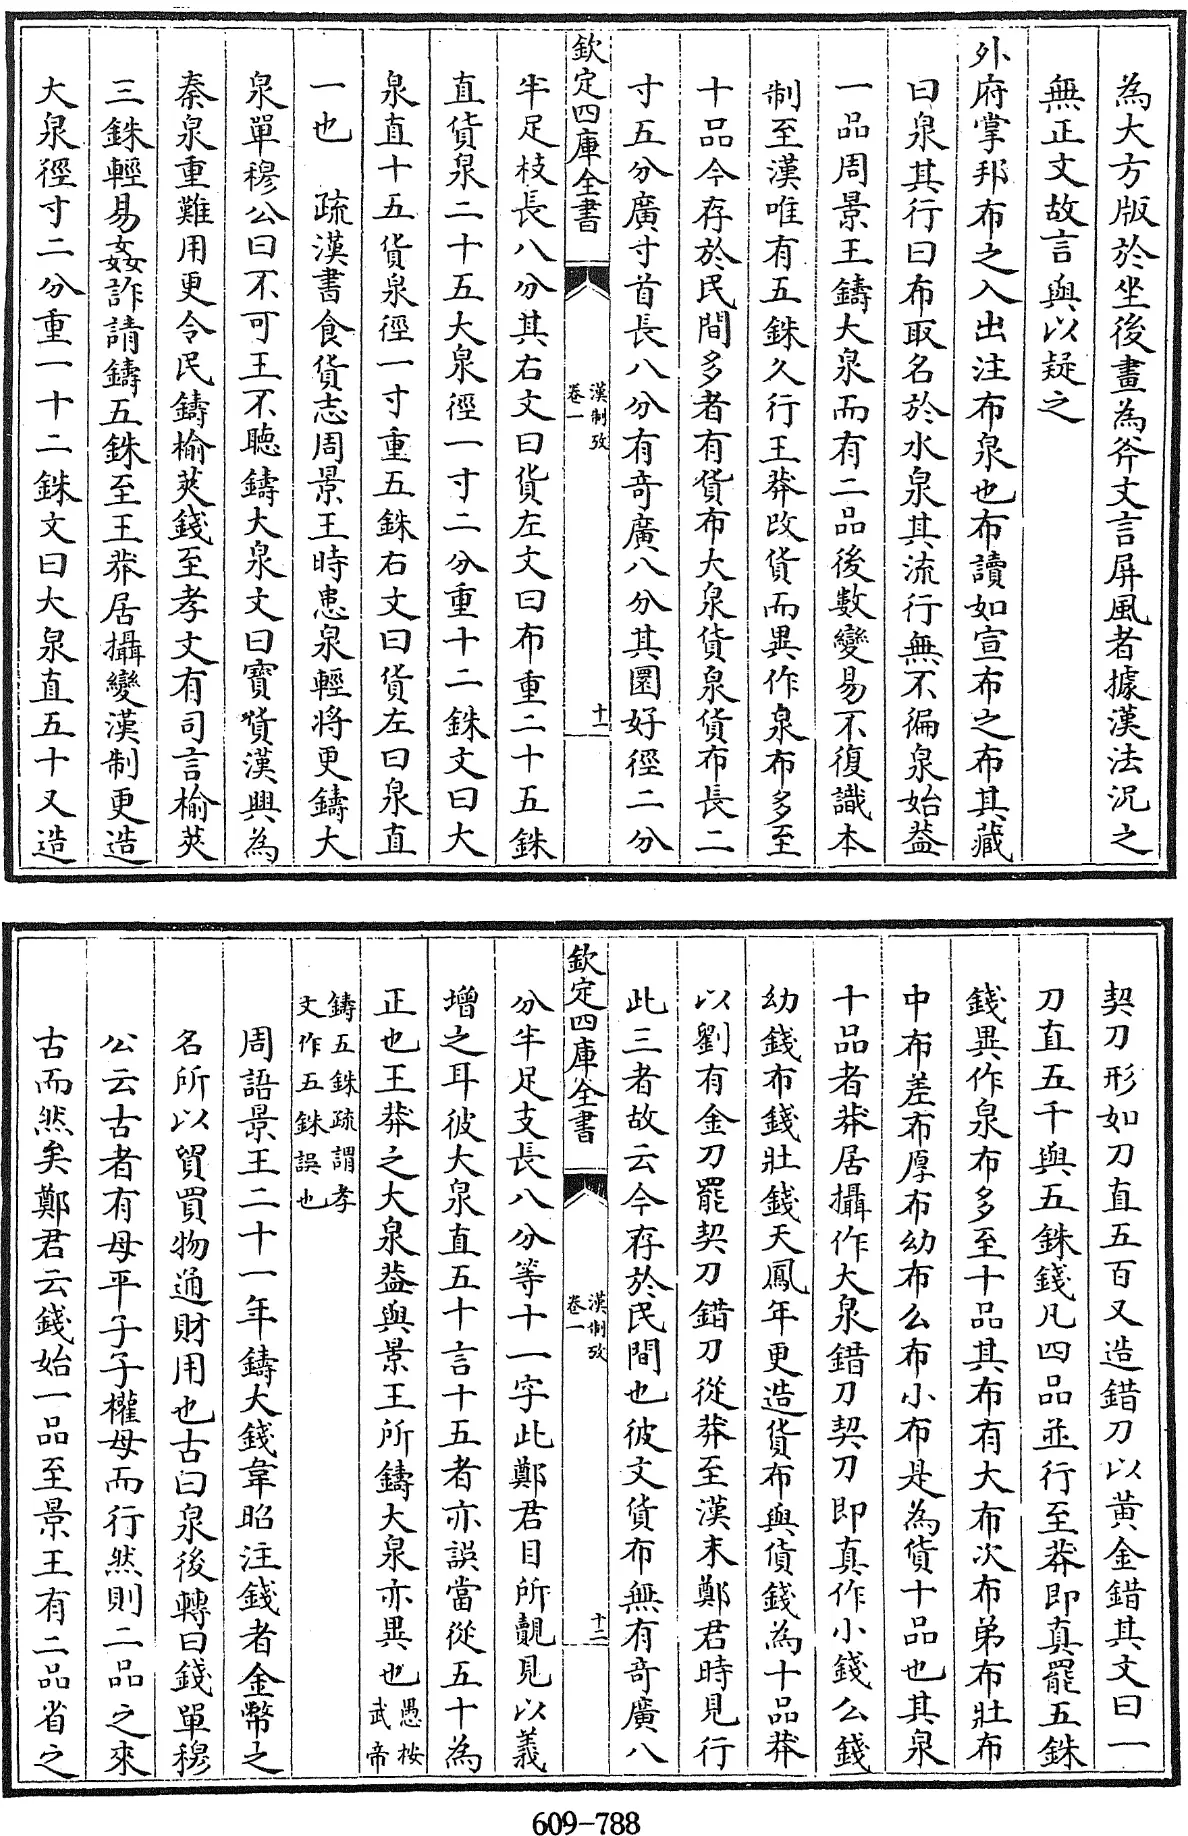 為大方版於坐後畫為斧文言屏風者據漢法況之
無正文故言與以疑之
外府掌邦布之入出注布泉也布讀如宣布之布其藏
曰泉其行曰布取名於水泉其流行無不徧泉始葢
一品周景王鑄大泉而有二品後數變易不復識本
制至漢唯有五銖久行王莽改貨而異作泉布多至
十品今存於民間多者有貨布大泉貨泉貨布長二
寸五分廣寸首長八分有奇廣八分其圜好徑二分
欽定四庫全書
漢制攷
卷一
十一
半足枝長八分其右文曰貨左文曰布重二十五銖
直貨泉二十五大泉徑一寸二分重十二銖文曰大
泉直十五貨泉徑一寸重五銖右文曰貨左曰泉直
一也 疏漢書食貨志周景王時患泉輕將更鑄大
泉單穆公曰不可王不聽鑄大泉文曰寳貨漢興為
秦泉重難用更令民鑄榆莢錢至孝文有司言榆莢
三銖輕易姦詐請鑄五銖至王莽居攝變漢制更造
大泉徑寸二分重一十二銖文曰大泉直五十又造
契刀形如刀直五百又造錯刀以黃金錯其文曰一
刀直五千與五銖錢凡四品並行至莽即真罷五銖
錢異作泉布多至十品其布有大布次布弟布壯布
中布差布厚布幼布么布小布是為貨十品也其泉
十品者莽居攝作大泉錯刀契刀即真作小錢么錢
幼錢布錢壯錢天鳳年更造貨布與貨錢為十品莽
以劉有金刀罷契刀錯刀從莽至漢末鄭君時見行
此三者故云今存於民間也彼文貨布無有奇廣八
欽定四庫全書
漢制攷
卷一
十二
分半足支長八分等十一字此鄭君目所覩見以義
增之耳彼大泉直五十言十五者亦誤當從五十為
正也王莽之大泉葢與景王所鑄大泉亦異也愚桉
武帝
鑄五銖疏謂孝
文作五銖誤也
周語景王二十一年鑄大錢韋昭注錢者金幣之
名所以貿買物通財用也古曰泉後轉曰錢單穆
公云古者有母平子子權母而行然則二品之來
古而然矣鄭君云錢始一品至景王有二品省之
609-788